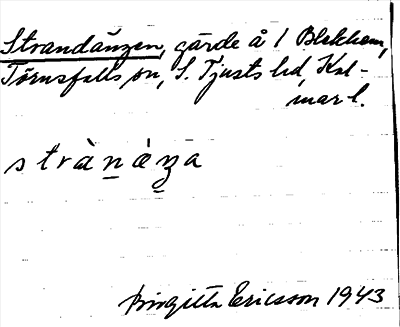 Strandängen, gärde å 1 Blekhem,
Törnsfalls sn, S. Tjusts hd, Kal-
mar l.
strànàna
Birgitta Ericsson 1943